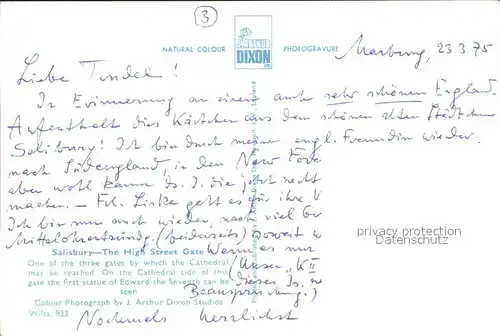 3
J. ARTHUR
DIXON
NATURAL COLOUR
PHOTOGRAVURE
Marburg, 23.3.75
Liebe Tundel!
In Erinnerung an einen auch sehr schönen England
Aufenthalt dies Kärtchen aus dem schönen alten Städtchen
Salisbury! Ich bin durch meine engl. Freundin wieder
nach Südengland, in den New Fore
aber wohl kaum ds. J. die jetzt recht
machen. – Frl. Linke geht es für ihre V
Ich bin nun auch wieder, nach viel
Mittelohrentzündg. (beiderseits) soweit
Wenn es nur
(Unser "K II
dieses Js. ne
Beanspruchung!)
Nochmals herzlichst
Salisbury—The High Street Gate
One of the three gates by which the Cathedral
may be reached. On the Cathedral side of this
gate the first statue of Edward the Seventh can be
seen
Colour Photograph by J. Arthur Dixon Studios
Wilts. 933
privacy protection
watermark